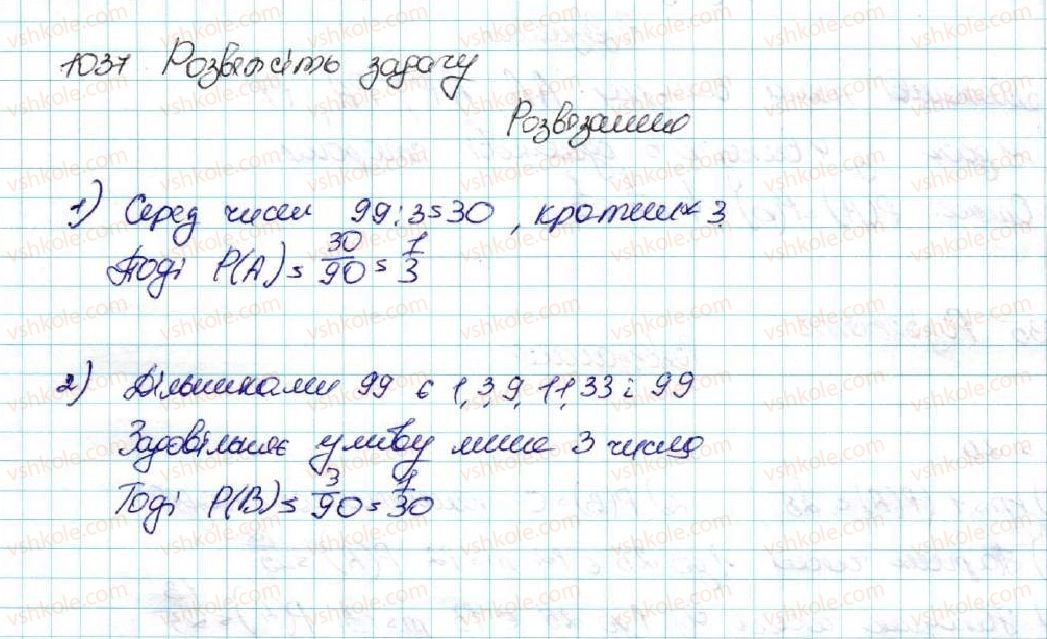 1037 Розвяжіть задачу
Розвязання
1) Серед чисел 99:3=30, кратних 3
Тоді P(A)=30/90=1/3
2) Дільниками 99 є 1,3,9,11,33 і 99
Задовільняє умову лише 3 числа
Тоді P(B)=3/90=1/30